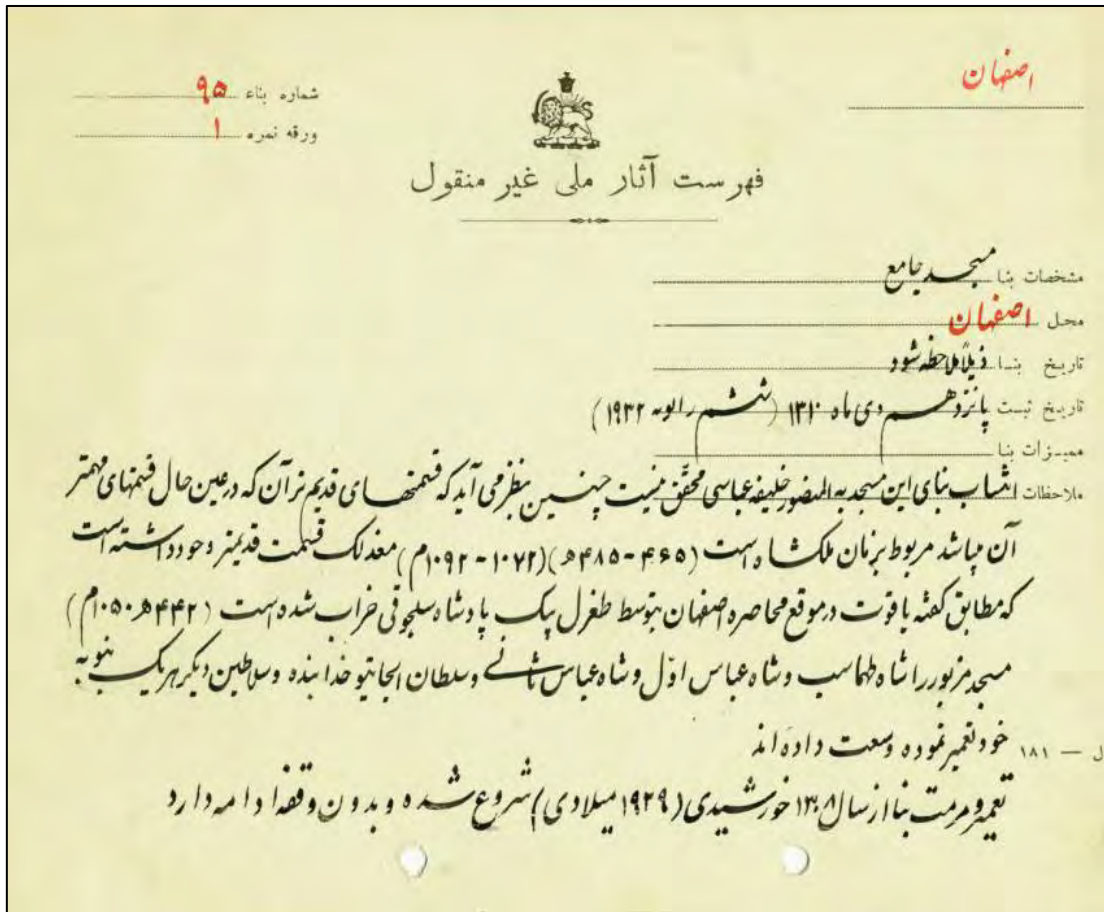 اصفهان
شماره بناء ۹۵
ورقه نمره ۱
فهرست آثار ملی غیر منقول
مشخصات بنا مسجد جامع
محل اصفهان
تاریخ بنا ذیلاً ملاحظه شود
تاریخ ثبت پانزدهم دی ماه ۱۳۱۰ (ششم ژانویه ۱۹۳۲)
ممیزات بنا
ملاحظات انتساب بنای این مسجد به المنصور خلیفه عباسی محقق نیست چنین بنظر می آید که قسمتهای قدیم تر آن که در عین حال قسمتهای مهمتر
آن میباشد مربوط بزمان ملکشاه است (۴۶۵-۴۸۵ ه) (۱۰۷۲-۱۰۹۲ م) معذلک قسمت قدیمتر وجود داشته است
که مطابق گفته یاقوت در موقع محاصره اصفهان بتوسط طغرل بیک پادشاه سلجوقی خراب شده است (۴۴۲ ه ۱۰۵۰ م)
مسجد مزبور را شاه طهماسب و شاه عباس اول و شاه عباس ثانی و سلطان الجایتو خدابنده و سلاطین دیگر هر یک بنوبه
خود تعمیر نموده وسعت داده اند
ل — ۱۸۱
تعمیر و مرمت بنا از سال ۱۳۰۸ خورشیدی (۱۹۲۹ میلادی) شروع شده و بدون وقفه ادامه دارد